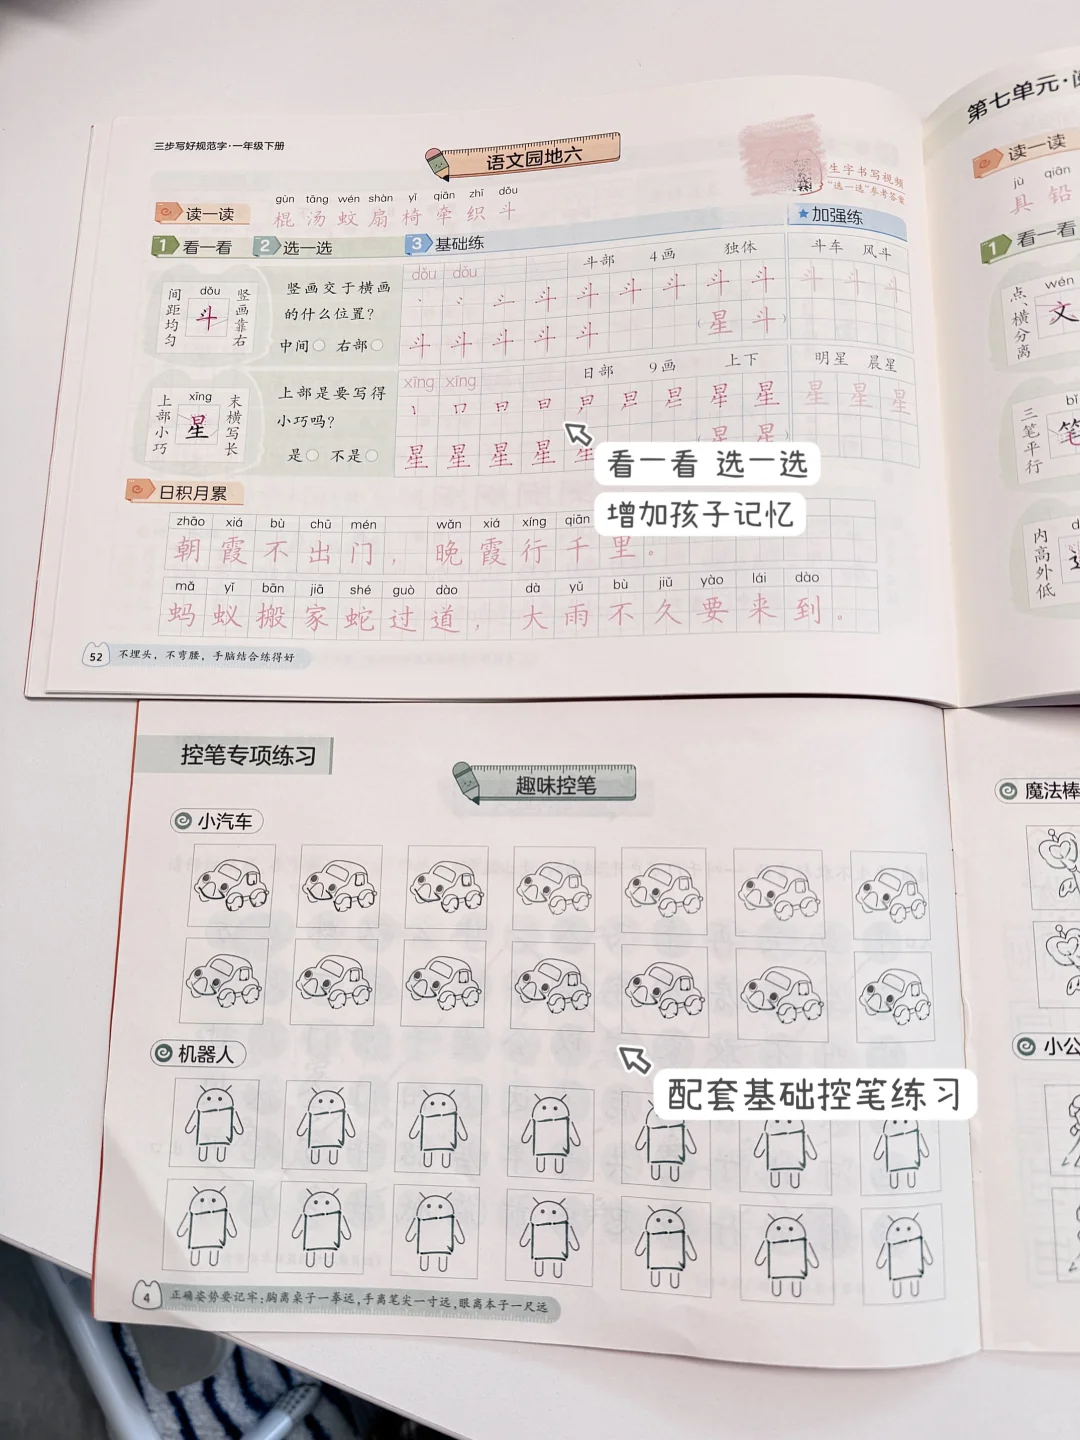 三步写好规范字·一年级下册
语文园地六
生字书写视频
“选一选”参考答案
gùn tāng wén shàn yǐ qiān zhī dǒu
读一读 棍 汤 蚊 扇 椅 牵 织 斗
1 看一看 2 选一选 3 基础练 ★加强练
间距均匀
dǒu
斗
竖画靠右
竖画交于横画
的什么位置?
中间 右部
dǒu dǒu
斗部 4画 独体
斗车 风斗
斗 斗 斗 斗 斗 斗 斗 斗 斗
斗 斗 斗 斗 斗 (星 斗)
上部小巧
xīng
星
末横写长
上部是要写得
小巧吗?
是 不是
xīng xīng
日部 9画 上下
明星 晨星
星 星 星 星 星
星 星 星 星 星 (星 星)
看一看 选一选
增加孩子记忆
日积月累
zhāo xiá bù chū mén wǎn xiá xíng qiān
朝霞不出门,晚霞行千里。
mǎ yǐ bān jiā shé guò dào dà yǔ bù jiǔ yào lái dào
蚂蚁搬家蛇过道,大雨不久要来到。
52 不埋头,不弯腰,手脑结合练得好
第七单元·
读一读
jù qiān
具 铅
1 看一看
点、横分离
wén
文
三笔平行
bǐ
笔
内高外低
控笔专项练习
趣味控笔
小汽车
机器人
配套基础控笔练习
4 正确姿势要记牢:胸离桌子一拳远,手离笔尖一寸远,眼离本子一尺远
魔法棒
小公